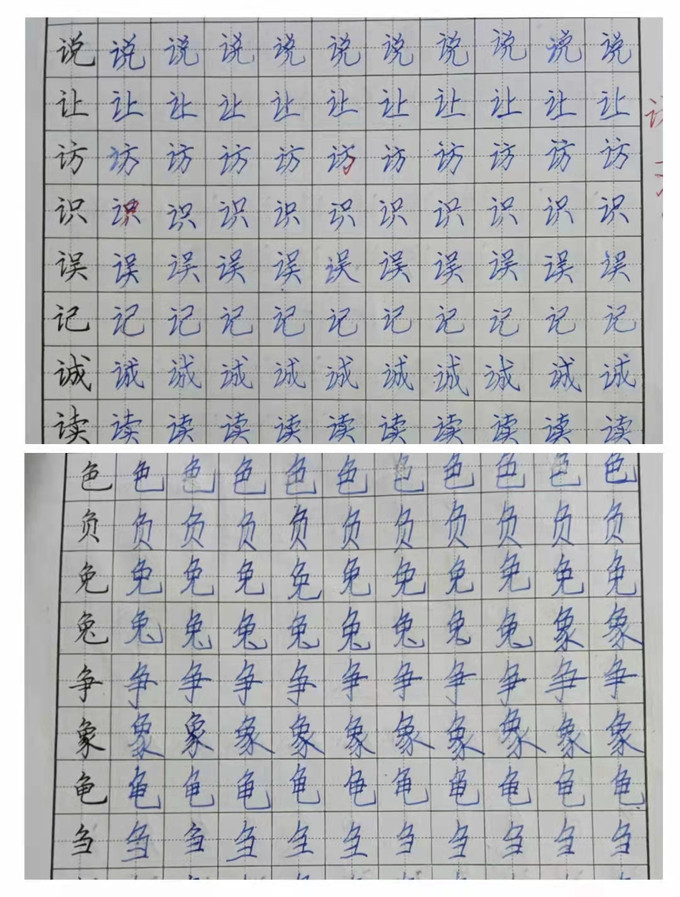 说说说说说说说说说说说
让让让让让让让让让让让
访访访访访访访访访访访
识识识识识识识识识识识
误误误误误误误误误误误
记记记记记记记记记记记
诚诚诚诚诚诚诚诚诚诚诚
读读读读读读读读读读读
色色色色色色色色色色色
负负负负负负负负负负负
免免免免免免免免免免免
兔兔兔兔兔兔兔兔兔象象
争争争争争争争争争争争
象象象象象象象象象象象
龟龟龟龟龟龟龟龟龟龟龟
刍刍刍刍刍刍刍刍刍刍刍